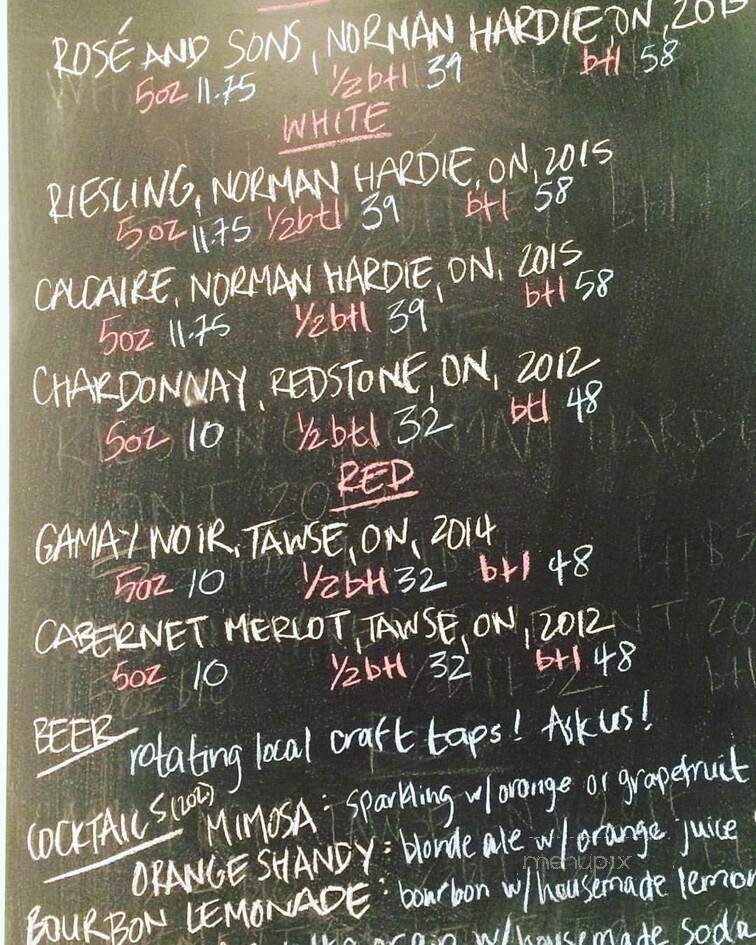 ROSÉ AND SONS, NORMAN HARDIE, ON, 2015
5oz 11.75 1/2btl 39 btl 58
WHITE
RIESLING, NORMAN HARDIE, ON, 2015
5oz 11.75 1/2btl 39 btl 58
CALCAIRE, NORMAN HARDIE, ON, 2015
5oz 11.75 1/2btl 39 btl 58
CHARDONNAY, REDSTONE, ON, 2012
5oz 10 1/2btl 32 btl 48
RED
GAMAY NOIR, TAWSE, ON, 2014
5oz 10 1/2btl 32 btl 48
CABERNET MERLOT, TAWSE, ON, 2012
5oz 10 1/2btl 32 btl 48
BEER rotating local craft taps! Ask us!
COCKTAILS (2oz) MIMOSA: sparkling w/orange or grapefruit
ORANGE SHANDY: blonde ale w/ orange juice
menupix
BOURBON LEMONADE: bourbon w/housemade lemon
w/housemade soda